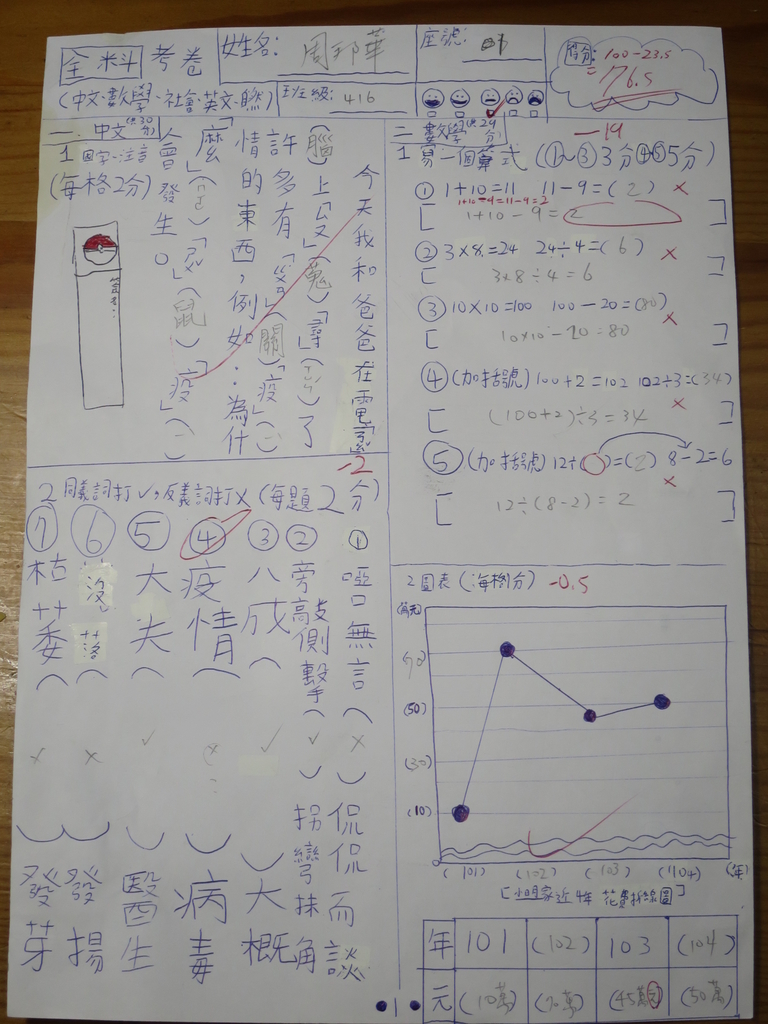 全科考卷
(中文、數學、社會、英文、聯)
姓名: 周邦華
班級: 416
座號:
得分: 100-23.5
=76.5
一. 中文(共30分)
1 國字、注音
(每格2分)
今天我和爸爸在電
(腦)上「ㄙㄡ」(蒐)「尋」(ㄒㄩㄣˊ)了
許多有「ㄍㄨㄢ」(關)「疫」(ㄧˋ)
情的東西,例如:為什
麼「
會發生。
人
(鼠)「疫」(ㄧˋ)
-2
2 同義詞打✓,反義詞打×(每題2分)
① 啞口無言(×)侃侃而談
② 旁敲側擊(✓)拐彎抹角
③ 八成(✓)大概
④ 疫情(×)病毒
⑤ 大夫(✓)醫生
⑥ 沒落(×)發揚
⑦ 枯萎(×)發芽
二 數學(共29分) -19
1 易一個算式(①~③3分④⑤5分)
① 1+10=11 11-9=(2) ×
1+10-9=11-9=2
[1+10-9=2]
② 3×8=24 24÷4=(6) ×
[3×8÷4=6]
③ 10×10=100 100-20=(80) ×
[10×10-20=80]
④ (加括號) 100+2=102 102÷3=(34)
×
[(100+2)÷3=34]
⑤ (加括號) 12÷( )=(2) 8-2=6
×
[12÷(8-2)=2]
2 圖表(每格分) -0.5
(萬元)
(70)
(50)
(30)
(10)
(101) (102) (103) (104) (年)
[小明家近4年花費折線圖]
年 101 (102) 103 (104)
元 (10萬) (70萬) (45萬元) (50萬)
1